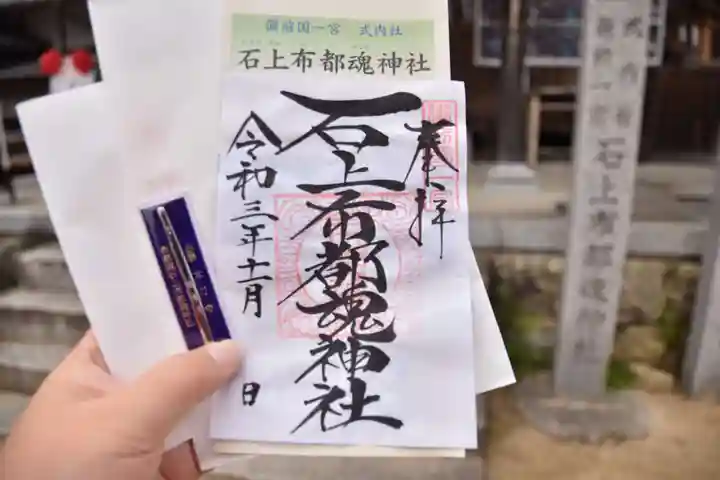 備前国一宮 式内社
石上布都魂神社
奉拝
石上布都魂神社
令和三年十一月 日
式内社
石上布都魂神社